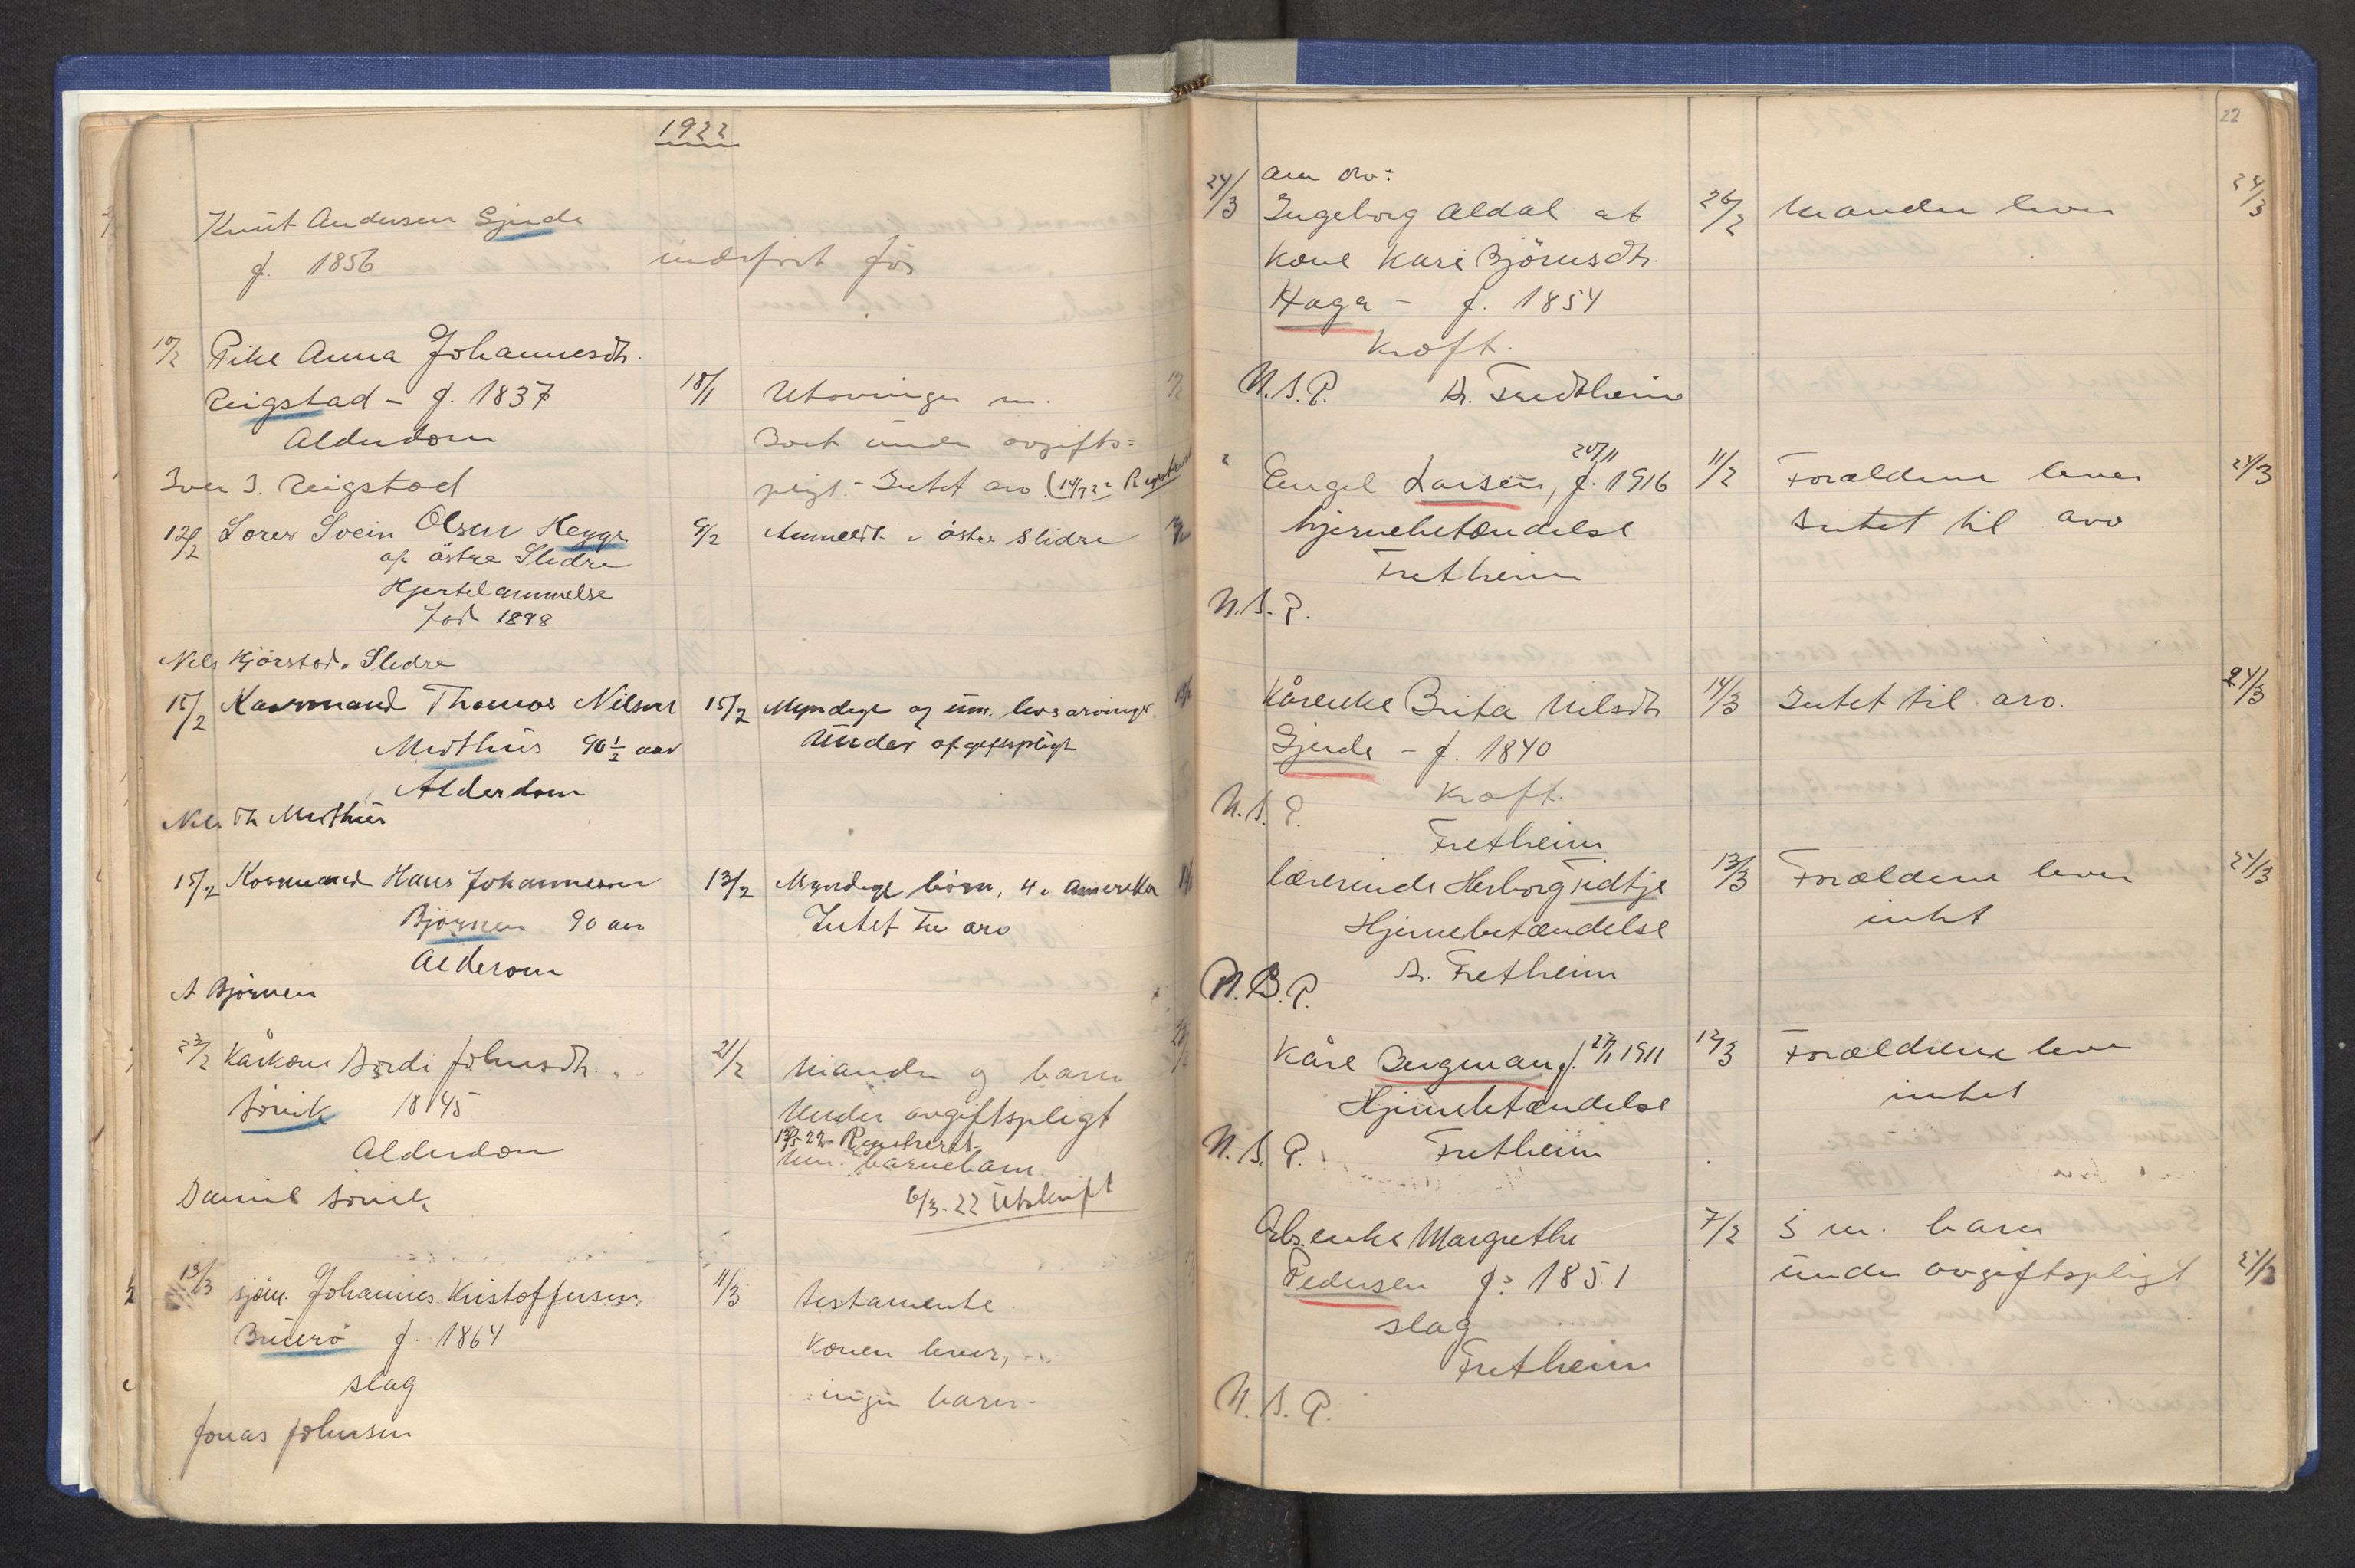 1922
Knut Andersen Gjerde
f. 1856 indført før
10/2 Pike Anna Johannesdtr.
Reigstad - f. 1837 18/1 Utarvinger m.
Alderdom Boet under avgifts=
Iver I. Reigstad pligt. - Intet arv (14/7 22
12/2 Lærer Svein Olsen Hegge 9/2 Anmeldt i østre Slidre
af østre Slidre
Hjertelammelse
Fød 1898
Nels Hjørstad. Slidre
15/2 Kaarmand Thomas Nilsen 15/2 Myndige og um. livsarvinger.
Midthus 90 1/2 aar Under afgiftspligt
Alderdom
Nels Th Midthus
15/2 Kaarmand Hans Johannesen 13/2 Myndige børn, 4 i Amerika
Bjørnen 90 aar Intet til arv
Alderdom
A Bjørnen
23/2 Kårkone Bordi Johnsdtr. 21/2 Manden og barn
1845 Under avgiftspligt
Registreret
Alderdom Um. barnebarn
Daniel 6/3-22 Utskrift
13/3 sjøm. Johannes Kristoffersen, 11/3 testamente.
Bruerø f. 1864 Konen lever,
slag ingen barn -
Jonas Johnsen
22
Am av:
24/3 Ingeborg Aldal at 26/2 Manden lever 24/3
Kone Kari Bjørnsdtr.
Haga - f. 1854
Kræft.
N.B.P. Dr. Fredtheim
Engel Larsen, f. 20/11 1916 11/2 Forældrene lever 24/3
hjernebetændelse Intet til arv
Fretheim
N.B.P.
Kårenke Brita Nilsdtr 14/3 Intet til arv. 24/3
Gjerde - f. 1840
Kræft.
N.B.P.
Fretheim
Lærerinde Herborg Tedtje 13/3 Forældrene lever 24/3
Hjernebetændelse intet
Dr. Fretheim
N.B.P.
Kåre Bergman f. 27/1 1911 12/3 Forældrene lever
Hjernebetændelse intet
N.B.P. Fretheim
Arb.enke Margrethe 7/2 5 m. barn
Pedersen f. 1851 under avgiftspligt 24/3
slag
Fretheim
N.B.P.